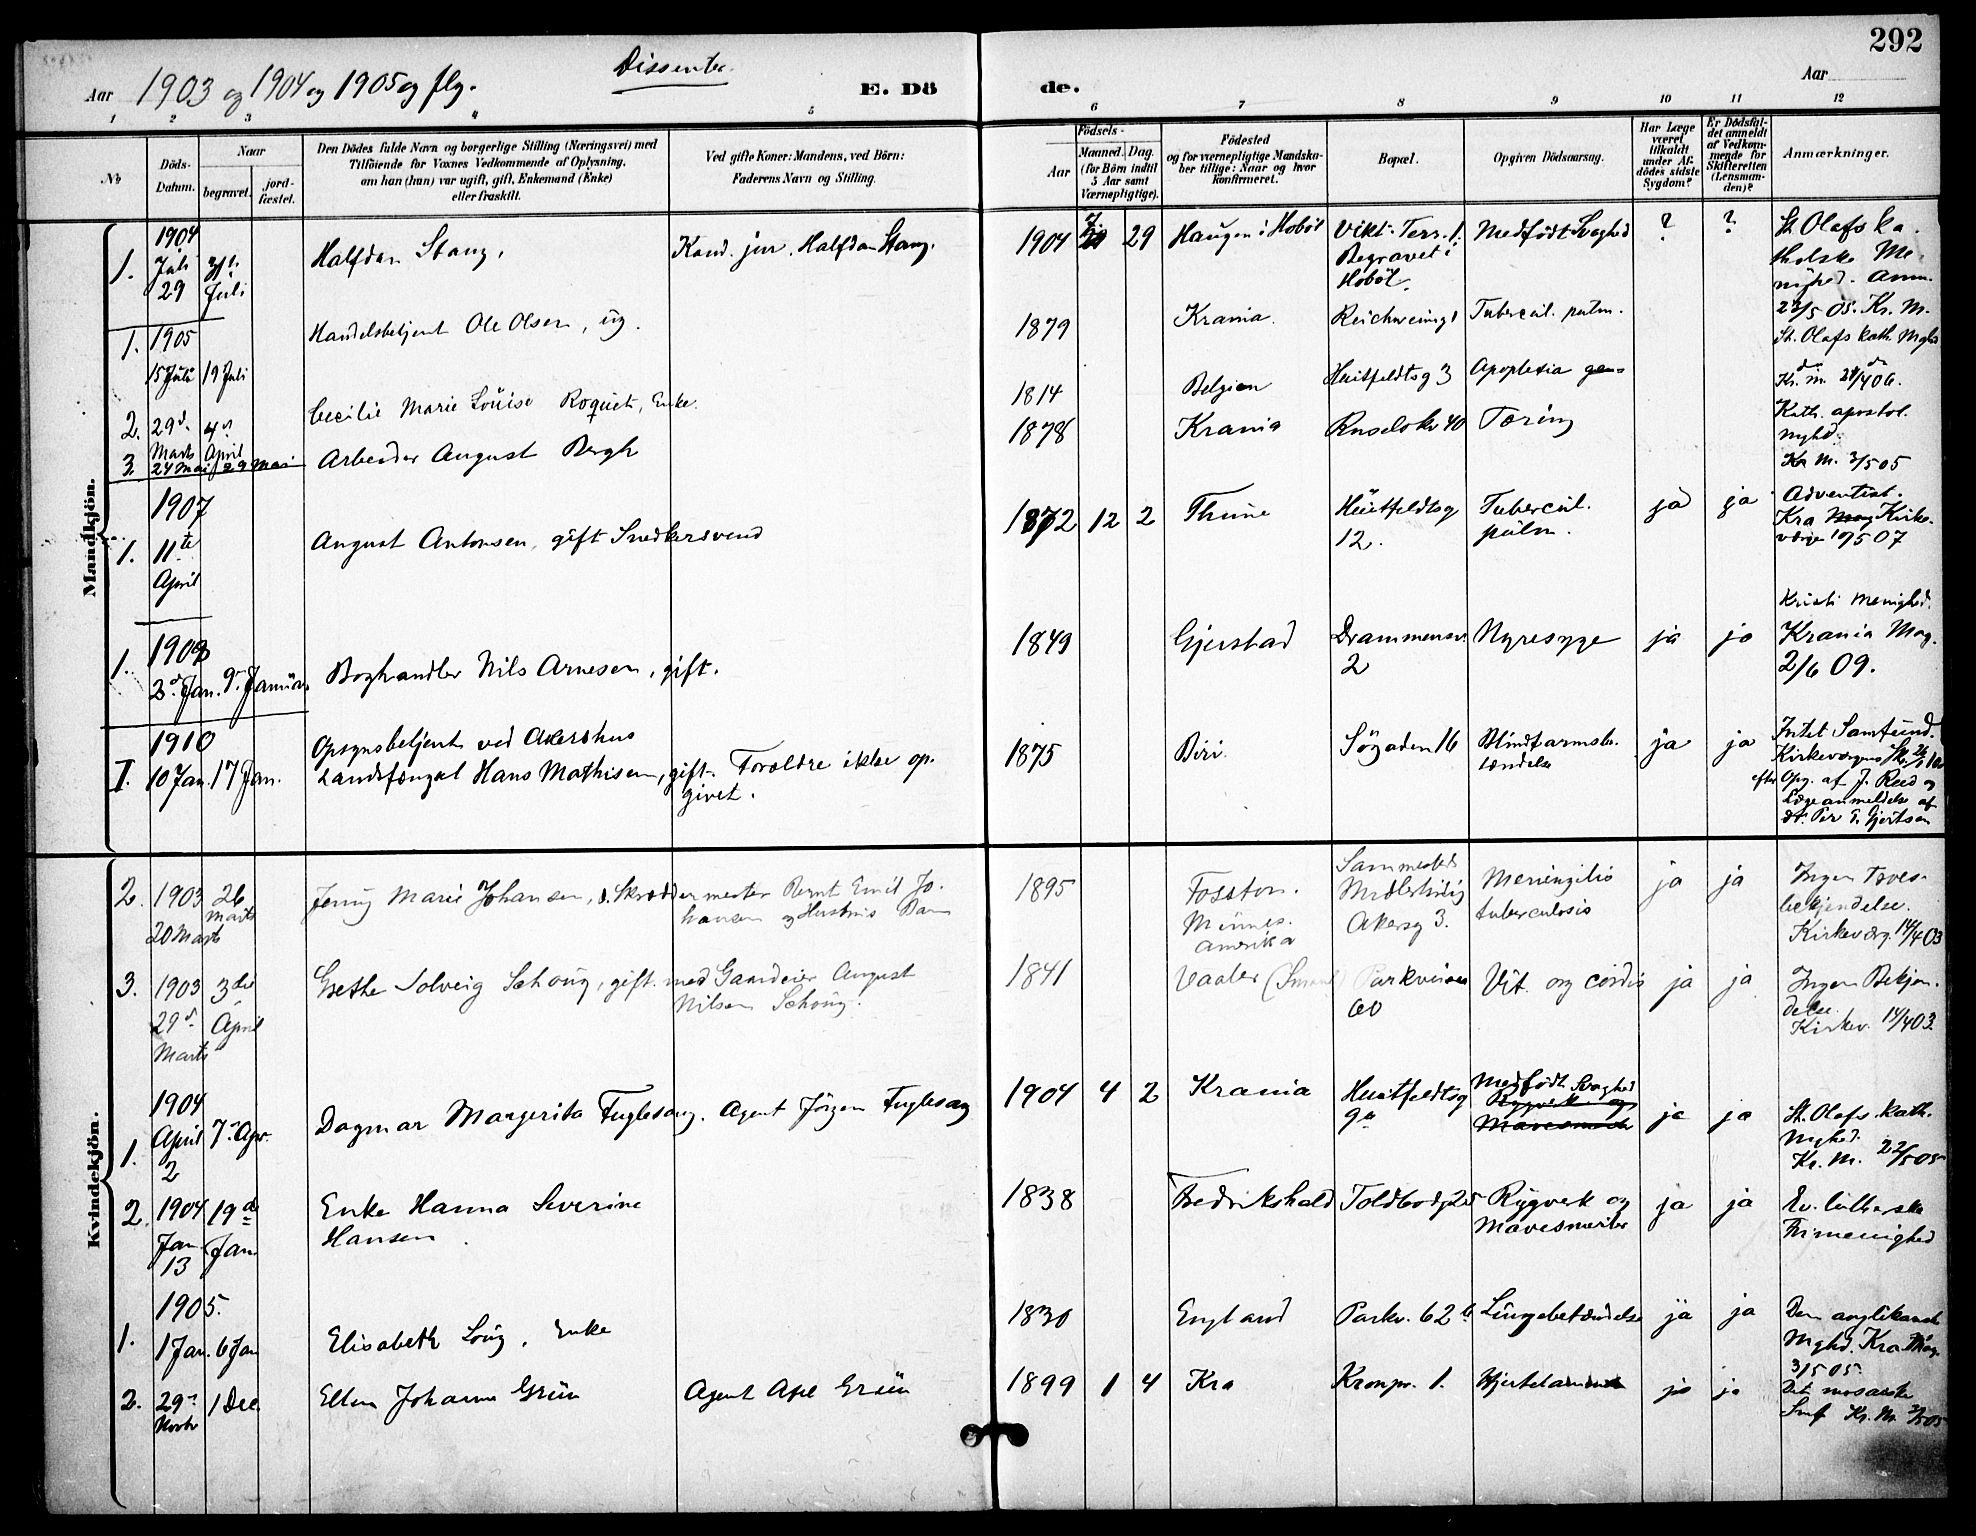 292
Dissenter.
Aar 1903 og 1904 og 1905 og flg.
E. Dö de.
Aar
1 2 3 4 5 6 7 8 9 10 11 12
No
Döds-Datum.
Naar
begravet.
jord-fæstet.
Den Dödes fulde Navn og borgerlige Stilling (Næringsvei) med
Tilföiende for Voxnes Vedkommende af Oplysning,
om han (hun) var ugift, gift, Enkemand (Enke)
eller fraskilt.
Ved gifte Koner: Mandens, ved Börn:
Faderens Navn og Stilling.
Födsels-
Aar
Maaned. Dag.
(for Börn indtil
5 Aar samt
Værnepligtige).
Födested
og for værnepligtige Mandska-
ber tillige: Naar og hvor
konfirmeret.
Bopæl.
Opgiven Dödsaarsag.
Har Læge
været
tilkaldt
under Af-
dödes sidste
Sygdom?
Er Dödsfal-
det anmeldt
af Vedkom-
mende for
Skifteretten
(Lensman-
den)?
Anmærkninger.
Mandkjön.
1. 1904 Juli 29 31. Juli Halfdan Stang, Kand. jur. Halfdan Stang. 1904 7 29 Haugen i Hobøl Vikt. Terr. 1. Begravet i Hobøl. Medfödt Svaghed ? ? St. Olafs katholske Menighed. Anm. 22/5 05. Kr. M.
1. 1905 15 Juli 19 Juli Handelsbetjent Ole Olsen, ug. 1879 Krania. Reichweinsg 1 Tubercul. pulm. St. Olafs kath. Mghd
2. 29d Marts 4d April Cecilie Marie Louise Roquet, Enke. 1814 Belgien Huitfeldtsg 3 Apoplexia do do Kr. M. 21/4 06.
3. 24 Mai 29 Mai Arbeider August Bergh 1878 Krania Ruselokv 40 Tæring Kath. apostol. Mghd. Kr M. 3/5 05
1. 1907 11te April August Antonsen, gift Snedkersvend 1872 12 2 Thune Huitfeldtsg 12. Tubercul. pulm. ja ja Adventist. Kra Kirkeværge 10/5 07
1. 1909 3d Jan. 9d Januar Boghandler Nils Arnesen, gift. 1849 Gjerstad Drammensv. 2 Nyresyge ja ja Kristi Menighed. Krania Mag. 2/6 09.
1. 1910 10 Jan. 17 Jan. Opsynsbetjent ved Akershus Landsfængsel Hans Mathisen, gift. Forældre ikke opgivet. 1875 Biri. Søgaden 16 Blindtarmsbetændelse ja ja Intet Samfund. Kirkeværgens efter Opg. af J. Reed og Lægeanmeldelse af dr. Per T. Gjertsen
Kvindekjön.
2. 1903 20 Marts 26 Marts Jenny Marie Johansen, d. Skræddermester Bernt Emil Johansen og Hustrus Barn 1895 Fosston. Minnes. Amerika Sammesteds Midlertidig Akersg 3. Meningitis tuberculosis ja ja Ingen Trosbekjendelse. Kirkeværg. 14/4 03
3. 1903 29d Marts 3die April Grethe Solveig Schoug, gift med Gaardeier August Nilsen Schoug. 1841 Vaaler Parkveien 60 Vit. org cordis ja ja Ingen Bekjendelse. Kirkev. 14/4 03.
1. 1904 April 2 7. Apr. Dagmar Margerita Fuglesang. Agent Jörgen Fuglesang 1904 4 2 Krania Huitfeldtsg 9a Medfödt Svaghed Rygverk og Mavesmerter ja ja St. Olafs kath. Mghed. Kr. M. 22/5 05
2. 1904 Jan. 13 19d Jan. Enke Hanna Severine Hansen. 1838 Fredrikshald Toldbodg 25 Rygverk og Mavesmerter ja ja Ev. lutherske Frimenighed
1. 1905. 1 Jan. 6 Jan Elisabeth Loug, Enke 1830 England Parkv. 62b Lungebetændelse ja ja Den anglikanske Mghd. Kra Mag. 3/5 05.
2. 29d Novbr 1 Dec. Ellen Johanne Grün Agent Axel Grün 1899 1 4 Kra Kronpr. 1. ja ja Det mosaiske Smf Kr. M.